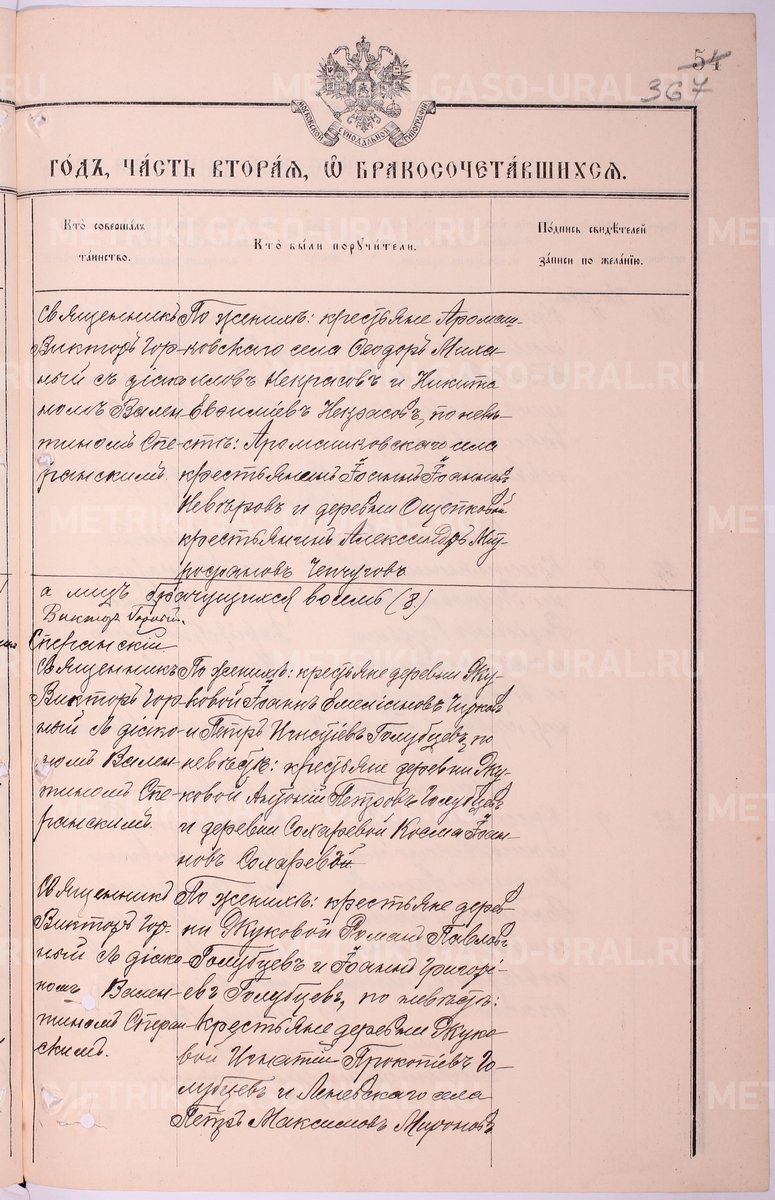 54
367
МОСКОВСКОЙ СѴНОДАЛЬНОЙ ТИПОГРАФІИ
ГО́ДЪ, ЧА́СТЬ ВТОРА́Я, Ѽ БРАКОСОЧЕТА́ВШИХСЯ.
Кто̀ соверша́лъ
та́инство.
Кто̀ бы́ли порꙋчи́тели.
По́дпись свидѣ́телей
за́писи по жела́нїю.
Священникъ
Викторъ Гор-
ный съ діако-
номъ Вален-
тиномъ Спе-
ранскимъ.
По женихѣ: крестьяне Аромаш-
ковскаго села Ѳеодоръ Миха-
иловъ Некрасовъ и Никита
Евѳиміевъ Некрасовъ, по невѣ-
стѣ: Аромашковскаго села
крестьянинъ Іоаннъ Іоанновъ
Невѣровъ и деревни Ощепковой
крестьянинъ Александръ Мит-
рофановъ Чепчуговъ
а лицъ брачущихся восемь (8.)
Викторъ Горный.
Сперанскій
Священникъ
Викторъ Гор-
ный съ діако-
номъ Вален-
тиномъ Спе-
ранскимъ.
По женихѣ: крестьяне деревни Жу-
ковой Іоаннъ Емельяновъ
и Петръ Игнатіевъ Голубцевъ, по
невѣстѣ: крестьяне деревни Жу-
ковой Антоній Петровъ Голубцевъ
и деревни Сохаревой Косма Іоан-
новъ Сохаревъ
Священникъ
Викторъ Гор-
ный съ діако-
номъ Вален-
тиномъ Сперан-
скимъ.
По женихѣ: крестьяне дерев-
ни Жуковой Романъ Павловъ
Голубцевъ и Іоаннъ Григорі-
евъ Голубцевъ, по невѣстѣ:
крестьяне деревни Жуко-
вой Игнатій Прокопіевъ Го-
лубцевъ и Леневскаго села
Петръ Максимовъ Мироновъ
METRIKI.GASO-URAL.RU